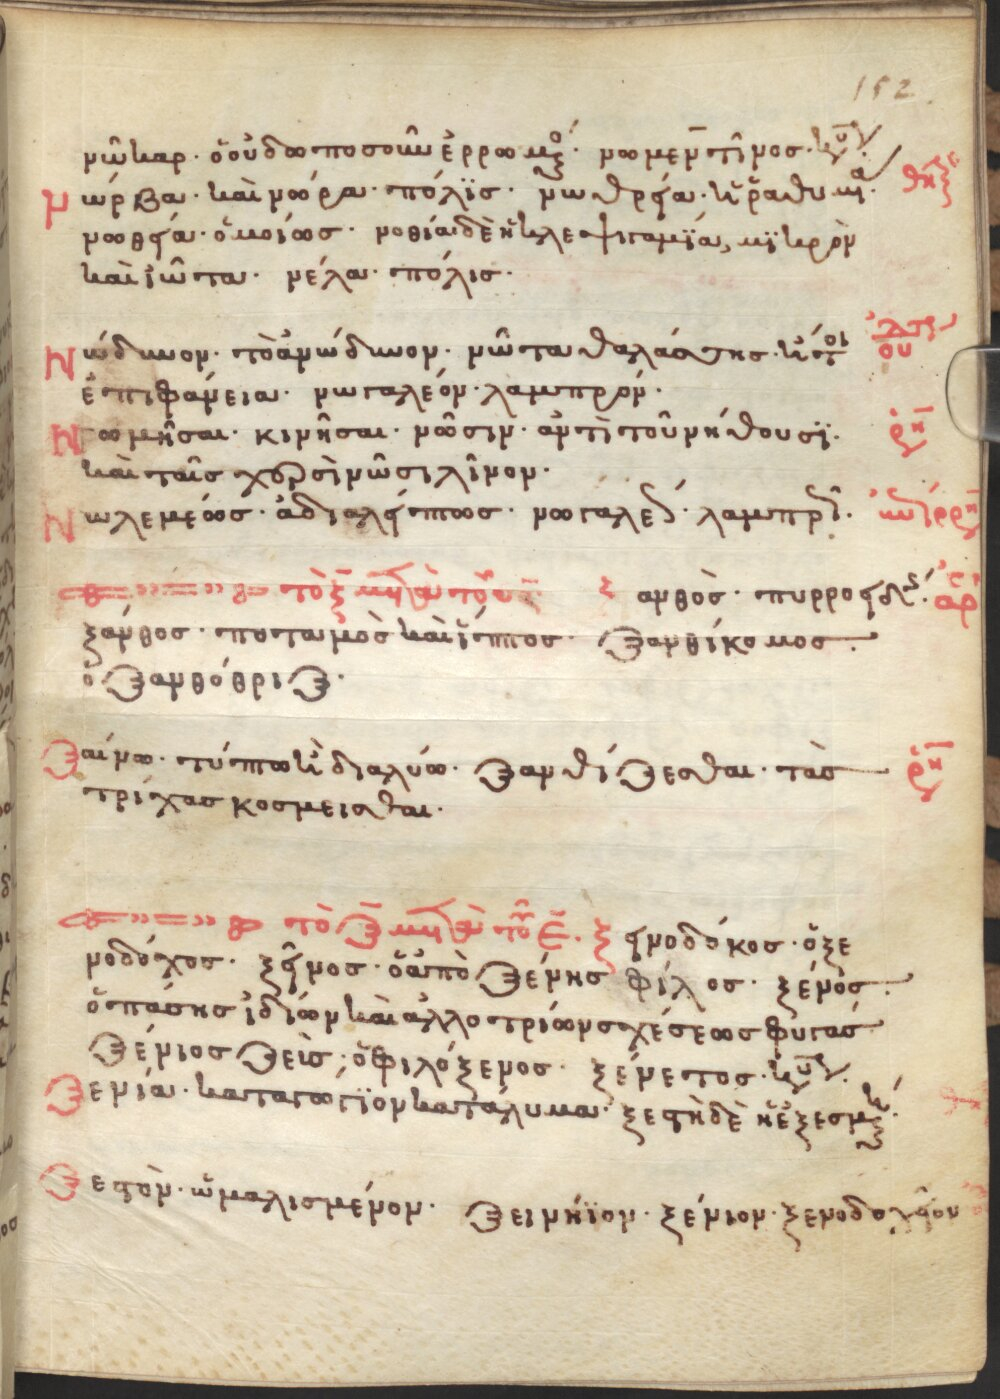 152
νῶκαρ· ὁ οὐδαποσοῦν ἐρρωμ · νωμεντῖνος· κύ
Νώρβα· καὶ νώρα· πόλϊς· νωθρεία· ἡ ῥαθυμ θηλ
νωθεία· ὁμοίως· νοθία δὲ ἡ κλεψιγαμϊα, μϊκρὸν
καὶ ἰῶτα· νόλα· πόλις·
Νώδυνον· τὸ ἀνώδυνον· νῶτα θαλάσσης· ἡ
ου
ἐπιφάνεια· νωγαλεόν· λαμπρόν·
Νωμῆσαι· κινῆσαι· νῶσιν· ἀντὶ τοῦ νήθουσϊ· ῥη
καὶ ταῖς χερσὶ νῶσι λῖνον·
Νωλεμέως· ἀδιαλείπτως· νωγαλε · λαμπρ ·
τὸ ξ μετὰ τοῦ α ξ ανθὸς· πυρροειδ · ἀρ
ξάνθος· ποταμὸς καὶ ἵππος· Ξανθίκομος·
ὁ Ξανθόθριξ·
Ξαίνω· τύπτω ἢ διαλύω· Ξανθίζεσθαι· τὰς ῥη
τρίχας κοσμεισθαι·
τὸ Ξ μετὰ τοῦ ε· ξ εινοδόκος· ὁ ξε
νοδόχος· ξεῖνος· ὁ ἀπὸ ξένης φίλος· ξένος·
ὁ πάσης ἰδίων καὶ ἀλλοτρίων σχέσεως φυγας
Ξένιος Ζεὺς· ὁ φιλόξενος· ξένεστος· κύ
Ξενία· καταγώγϊον κατάλυμα· ξεστὴ δὲ ἡ ἐξεσμ
Ξεστὸν· ὡμαλισμένον· Ξεινήϊον· ξένιον· ξενοδοχεῖον